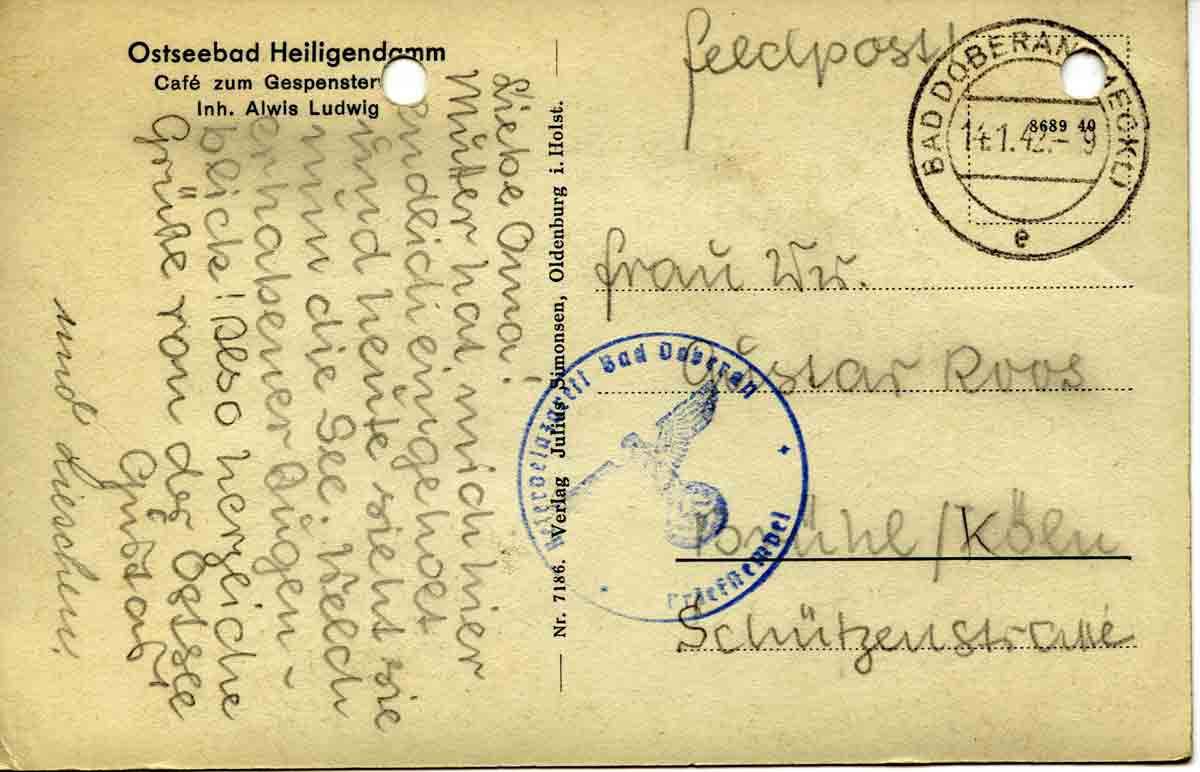 Ostseebad Heiligendamm
Café zum Gespenster
Inh. Alwis Ludwig
Liebe Oma!
Mutter hat mich hier
endlich eingeholt
und heute sieht sie
nun die See. Welch
erhabener Augen-
blick! Also herzliche
Grüße von der Ostsee
Gustav
und Lieschen.
Nr. 7186. Verlag Julius Simonsen, Oldenburg i. Holst.
Feldpost!
BAD DOBERAN (MECKL)
14.1.42.- 9
8689 40
e
Frau Ww.
Gustav Roos
Brühl/Köln
Schützenstraße
Reservelazarett Bad Doberan
Briefstempel